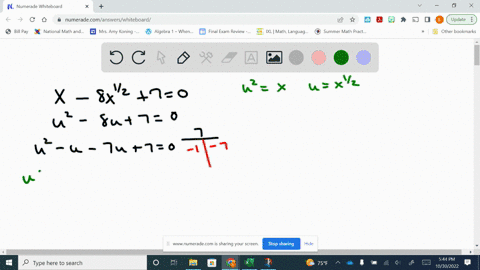 Numerade Whiteboard
numerade.com/answers/whiteboard/
Update
Bill Pay
National Math and
Mrs. Amy Koning -
Algebra 1 - When
Final Exam Review -
IXL | Math, Languag
Summer Math Pract
Other bookmarks
x - 8x^1/2 + 7 = 0
u² = x u = x^1/2
u² - 8u + 7 = 0
u² - u - 7u + 7 = 0
7
-1 -7
u
www.numerade.com is sharing your screen. Stop sharing Hide
Type here to search
75°F
5:44 PM
10/30/2022